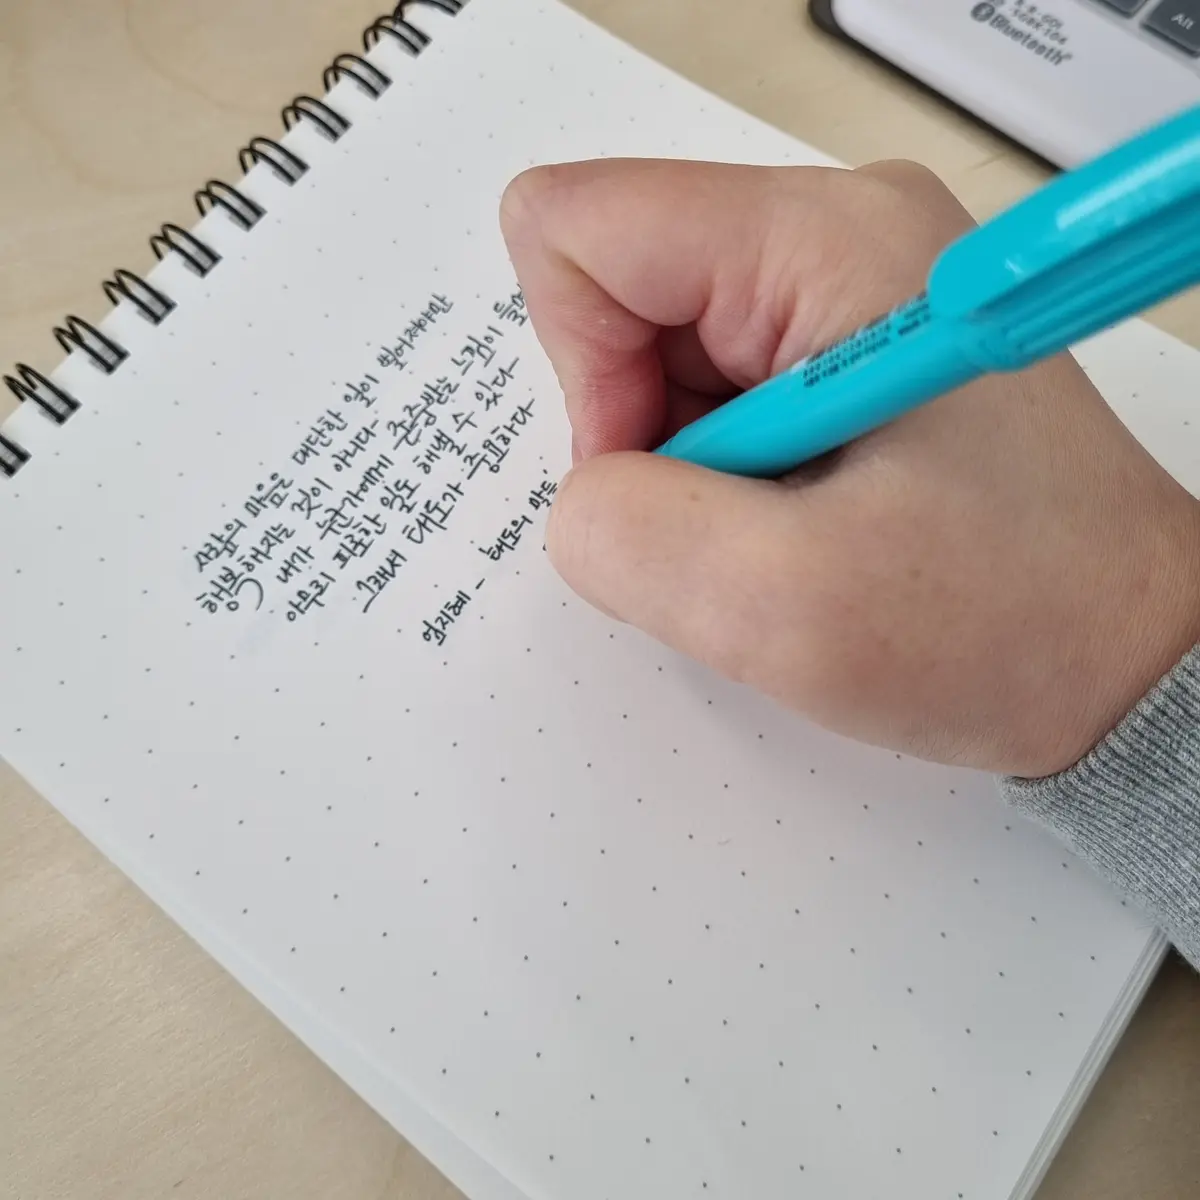 사람의 마음은 대단한 일이 벌어져야만
행복해지는 것이 아니다
내가 누군가에게 존중받는 느낌이
아무리 피로한 일도 해낼 수 있다
그래서 태도가 중요하다
엄지혜 - '태도의 말들'
Bluetooth
Alt